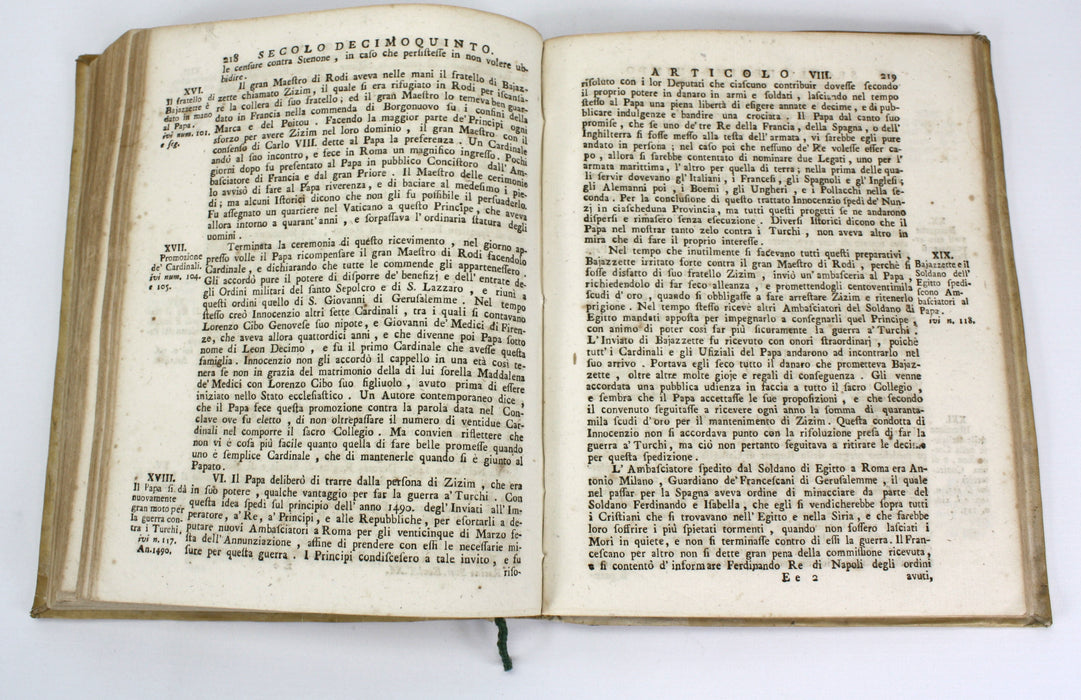 218 SECOLO DECIMOQUINTO.
le censure contra Stenone, in caso che persistesse in non volere ub-
bidire.
XVI.
Il fratello di
Bajazzette è
dato in mano
al Papa.
ivi num. 101.
e seg.
Il gran Maestro di Rodi aveva nelle mani il fratello di Bajaz-
zette chiamato Zizim, il quale si era rifugiato in Rodi per iscansa-
re la collera di suo fratello; ed il gran Maestro lo temeva ben guar-
dato in Francia nella commenda di Borgonuovo su i confini della
Marca e del Poitou. Facendo la maggior parte de' Principi ogni
sforzo per avere Zizim nel loro dominio, il gran Maestro, con il
consenso di Carlo VIII. dette al Papa la preferenza. Un Cardinale
andò al suo incontro, e fece in Roma un magnifico ingresso. Pochi
giorni dopo fu presentato al Papa in pubblico Concistoro dall' Am-
basciatore di Francia e dal gran Priore. Il Maestro delle Cerimonie
lo avvisò di fare al Papa riverenza, e di baciare al medesimo i pie-
di; ma alcuni Istorici dicono che non gli fu possibile il persuaderlo.
Fu assegnato un quartiere nel Vaticano a questo Principe, che aveva
allora intorno a quarant' anni, e sorpassava l' ordinaria statura degli
uomini.
XVII.
Promozione
de' Cardinali.
ivi num. 104.
e 105.
Terminata la ceremonia di questo ricevimento, nel giorno ap-
presso volle il Papa ricompensare il gran Maestro di Rodi facendolo
Cardinale, e dichiarando che tutte le commende gli appartenessero.
Gli accordò pure il potere di disporre de' benefizj e dell' entrate de-
gli Ordini militari del santo Sepolcro e di S. Lazzaro, e riunì a
questi ordini quello di S. Giovanni di Gerusalemme. Nel tempo
stesso creò Innocenzio altri sette Cardinali, tra i quali si contavano
Lorenzo Cibo Genovese suo nipote, e Giovanni de' Medici di Firen-
ze, che aveva allora quattordici anni, e che divenne poi Papa sotto
nome di Leon Decimo, e fu il primo Cardinale che avesse questa
famiglia. Innocenzio non gli accordò il cappello in una età così te-
nera se non in grazia del matrimonio della di lui sorella Maddalena
de' Medici con Lorenzo Cibo suo figliuolo, avuto prima di essere
iniziato nello Stato ecclesiastico. Un Autore contemporaneo dice,
che il Papa fece questa promozione contra la parola data nel Con-
clave ove fu eletto, di non oltrepassare il numero di ventidue Car-
dinali nel comporre il sacro Collegio. Ma convien riflettere che
non vi è cosa più facile quanto quella di fare belle promesse quando
uno è semplice Cardinale, che di mantenerle quando si è giunto al
Papato.
XVIII.
Il Papa si dà
nuovamente
gran moto per
la guerra con-
tra i Turchi.
ivi n. 117.
An. 1490.
VI. Il Papa deliberò di trarre dalla persona di Zizim, che era
in suo potere, qualche vantaggio per far la guerra a' Turchi. Con
questa idea spedì sul principio dell' anno 1490. degl' Inviati all' Im-
peratore, a' Re, a' Principi, e alle Repubbliche, per esortarli a de-
putare nuovi Ambasciatori a Roma per gli venticinque di Marzo fe-
sta dell' Annunziazione, affine di prendere con essi le necessarie mi-
sure per questa guerra. I Principi condiscesero a tale invito, e fu
riso-
ARTICOLO VIII. 219
risoluto con i lor Deputati che ciascuno contribuir dovesse secondo
il proprio potere in danaro in armi e soldati, lasciando nel tempo
stesso al Papa una piena libertà di esigere annate e decime, e di pub-
blicare indulgenze e bandire una crociata. Il Papa dal canto suo
promise, che se uno de' tre Re della Francia, della Spagna, o dell'
Inghilterra si fosse messo alla testa dell' armata, vi sarebbe egli pure
andato in persona; nel caso poi che nessuno de' Re volesse esser ca-
po, allora si sarebbe contentato di nominare due Legati, uno per l'
armata marittima, l' altro per quella di terra; nella prima delle qua-
li servir dovevano gl' Italiani, i Francesi, gli Spagnoli e gl' Inglesi;
gli Alemanni poi, i Boemi, gli Ungheri, e i Pollacchi nella se-
conda. Per la conclusione di questo trattato Innocenzio spedì de' Nun-
zj in ciascheduna Provincia, ma tutti questi progetti se ne andarono
dispersi e rimasero senza esecuzione. Diversi Istorici dicono che il
Papa nel mostrar tanto zelo contra i Turchi, non aveva altro in
mira che di fare il proprio interesse.
Nel tempo che inutilmente si facevano tutti questi preparativi,
Bajazzette irritato forte contra il gran Maestro di Rodi, perchè si
fosse disfatto di suo fratello Zizim, inviò un' ambasceria al Papa
richiedendolo di far seco alleanza, e promettendogli centoventimila
scudi d' oro, quando si obbligasse a fare arrestare Zizim e ritenerlo
prigione. Nel tempo stesso riceve altri Ambasciatori del Soldano di
Egitto mandati apposta per impegnarlo a consegnarli quel Principe,
con animo di poter così far più sicuramente la guerra a' Turchi.
L' Inviato di Bajazzette fu ricevuto con onori straordinarj, poichè
tutt' i Cardinali e gli Ufiziali del Papa andarono ad incontrarlo nel
suo arrivo. Portava egli seco tutto il danaro che prometteva Bajaz-
zette, oltre altre molte gioje e regali di conseguenza. Gli venne
accordata una pubblica udienza in faccia a tutto il sacro Collegio,
e sembra che il Papa accettasse le sue proposizioni, e che secondo
il convenuto seguitasse a ricevere ogni anno la somma di quaranta-
mila scudi d' oro per il mantenimento di Zizim. Questa condotta di
Innocenzio non si accordava punto con la risoluzione presa di far la
guerra a' Turchi, ma ciò non pertanto seguitava a ritirare le decime
per questa spedizione.
XIX.
Bajazzette e il
Soldano dell'
Egitto spedi-
scono Am-
basciatori al
Papa.
ivi n. 118.
L' Ambasciatore spedito dal Soldano di Egitto a Roma era An-
tonio Milano, Guardiano de' Francescani di Gerusalemme, il quale
nel passar per la Spagna aveva ordine di minacciare da parte del
Soldano Ferdinando e Isabella, che egli si vendicherebbe sopra tutti
i Cristiani che si trovavano nell' Egitto e nella Siria, e che sarebbe
loro soffrire i più spietati tormenti, quando non fossero lasciati i
Mori in quiete, e non si terminasse contro di essi la guerra. Il Fran-
cescano per altro non si dette gran pena della commissione ricevuta,
e si contentò d' informare Ferdinando Re di Napoli degli ordini
E e 2 avuti,